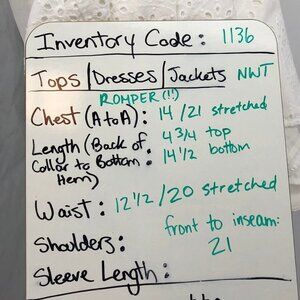 Inventory Code: 1136
Tops/Dresses/Jackets NWT
ROMPER (!!)
Chest (A to A): 14/21 stretched
Length (Back of Collar to Bottom Hem): 4 3/4 top
14 1/2 bottom
Waist: 12 1/2 /20 stretched
Shoulders: front to inseam: 21
Sleeve Length: